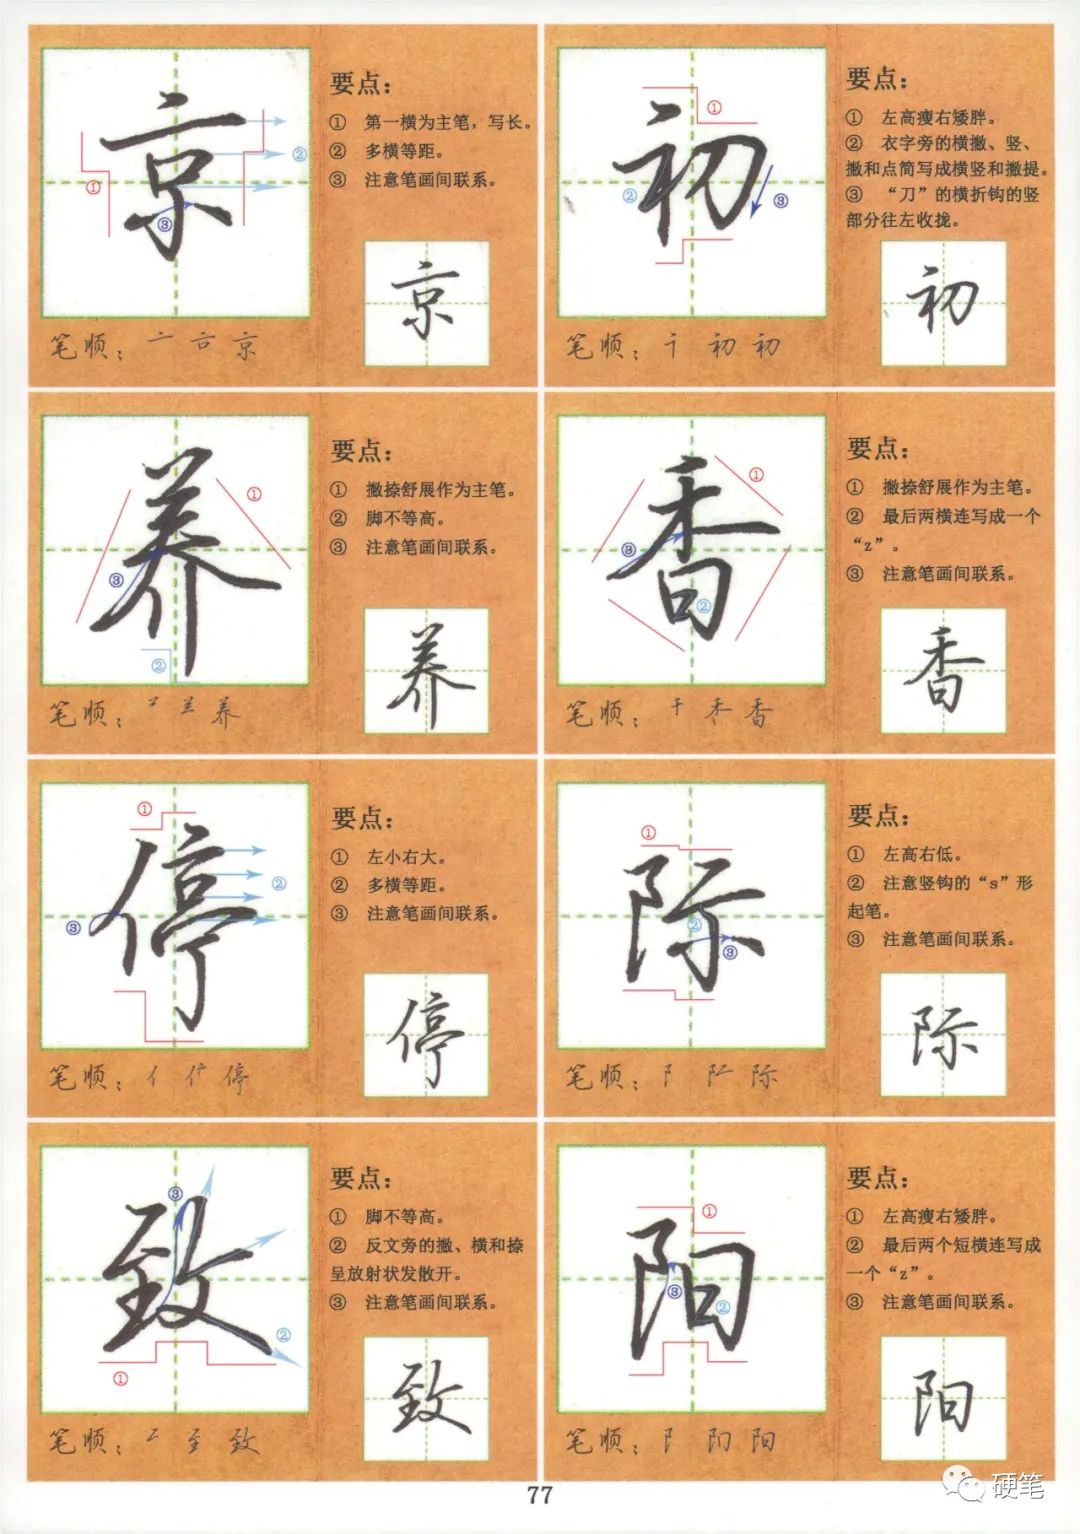 京
要点：
① 第一横为主笔，写长。
② 多横等距。
③ 注意笔画间联系。
京
笔顺： 亠 京
初
要点：
① 左高瘦右矮胖。
② 衣字旁的横撇、竖、
撇和点简写成横竖和撇提。
③ “刀”的横折钩的竖
部分往左收拢。
初
笔顺： 初 初
养
要点：
① 撇捺舒展作为主笔。
② 脚不等高。
③ 注意笔画间联系。
养
笔顺： 养
香
要点：
① 撇捺舒展作为主笔。
② 最后两横连写成一个
“z”。
③ 注意笔画间联系。
香
笔顺： 千 禾 香
停
要点：
① 左小右大。
② 多横等距。
③ 注意笔画间联系。
停
笔顺： 亻 停
际
要点：
① 左高右低。
② 注意竖钩的“s”形
起笔。
③ 注意笔画间联系。
际
笔顺： 阝 际
致
要点：
① 脚不等高。
② 反文旁的撇、横和捺
呈放射状发散开。
③ 注意笔画间联系。
致
笔顺： 至 致
阳
要点：
① 左高瘦右矮胖。
② 最后两个短横连写成
一个“z”。
③ 注意笔画间联系。
阳
笔顺： 阝 阳
77
硬笔